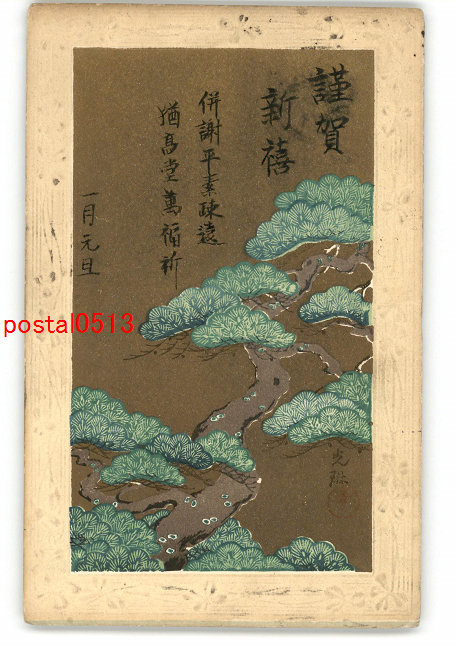 謹賀
新禧
併謝平素疎遠
猶高堂萬福祈
一月元旦
光琳
postal0513